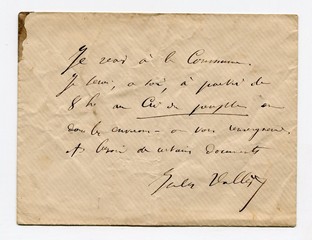 Je vais à la Commune.
Je serai, ce soir, à partir de
8 h au Cri du peuple ou
dans les environs – on vous renseignera.
Ai besoin de certains documents
Jules Vallès